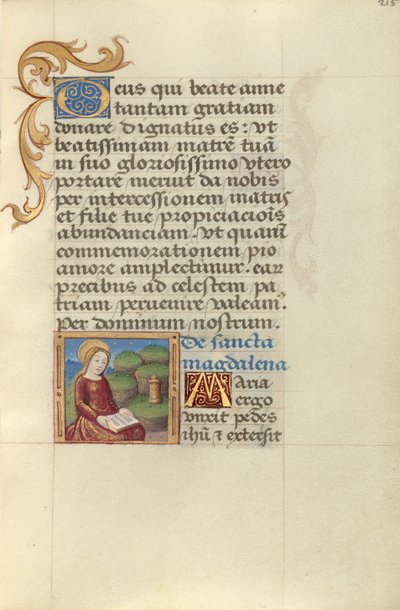 215
Deus qui beate anne
tantam gratiam
donare dignatus es: vt
beatissimam matrē tuā
in suo gloriosissimo vtero
portare meruit da nobis
per intercessionem matris
et filie tue propiciacioīs
abundanciam. vt quarū
commemorationem pio
amore amplectimur. ear
precibus ad celestem pa
triam peruenire valeam̄.
Per dominum nostrum.
De sancta
magdalena
Maria
ergo
vnxit pedes
ihū ⁊ extersit